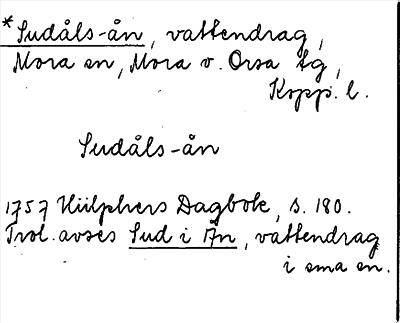 *Sudåls-ån, vattendrag,
Mora sn, Mora o. Orsa tg,
Kopp. l.
Sudåls-ån
1757 Hülphers Dagbok, s. 180.
Trol. avses Sud i Ån, vattendrag
i sma sn.